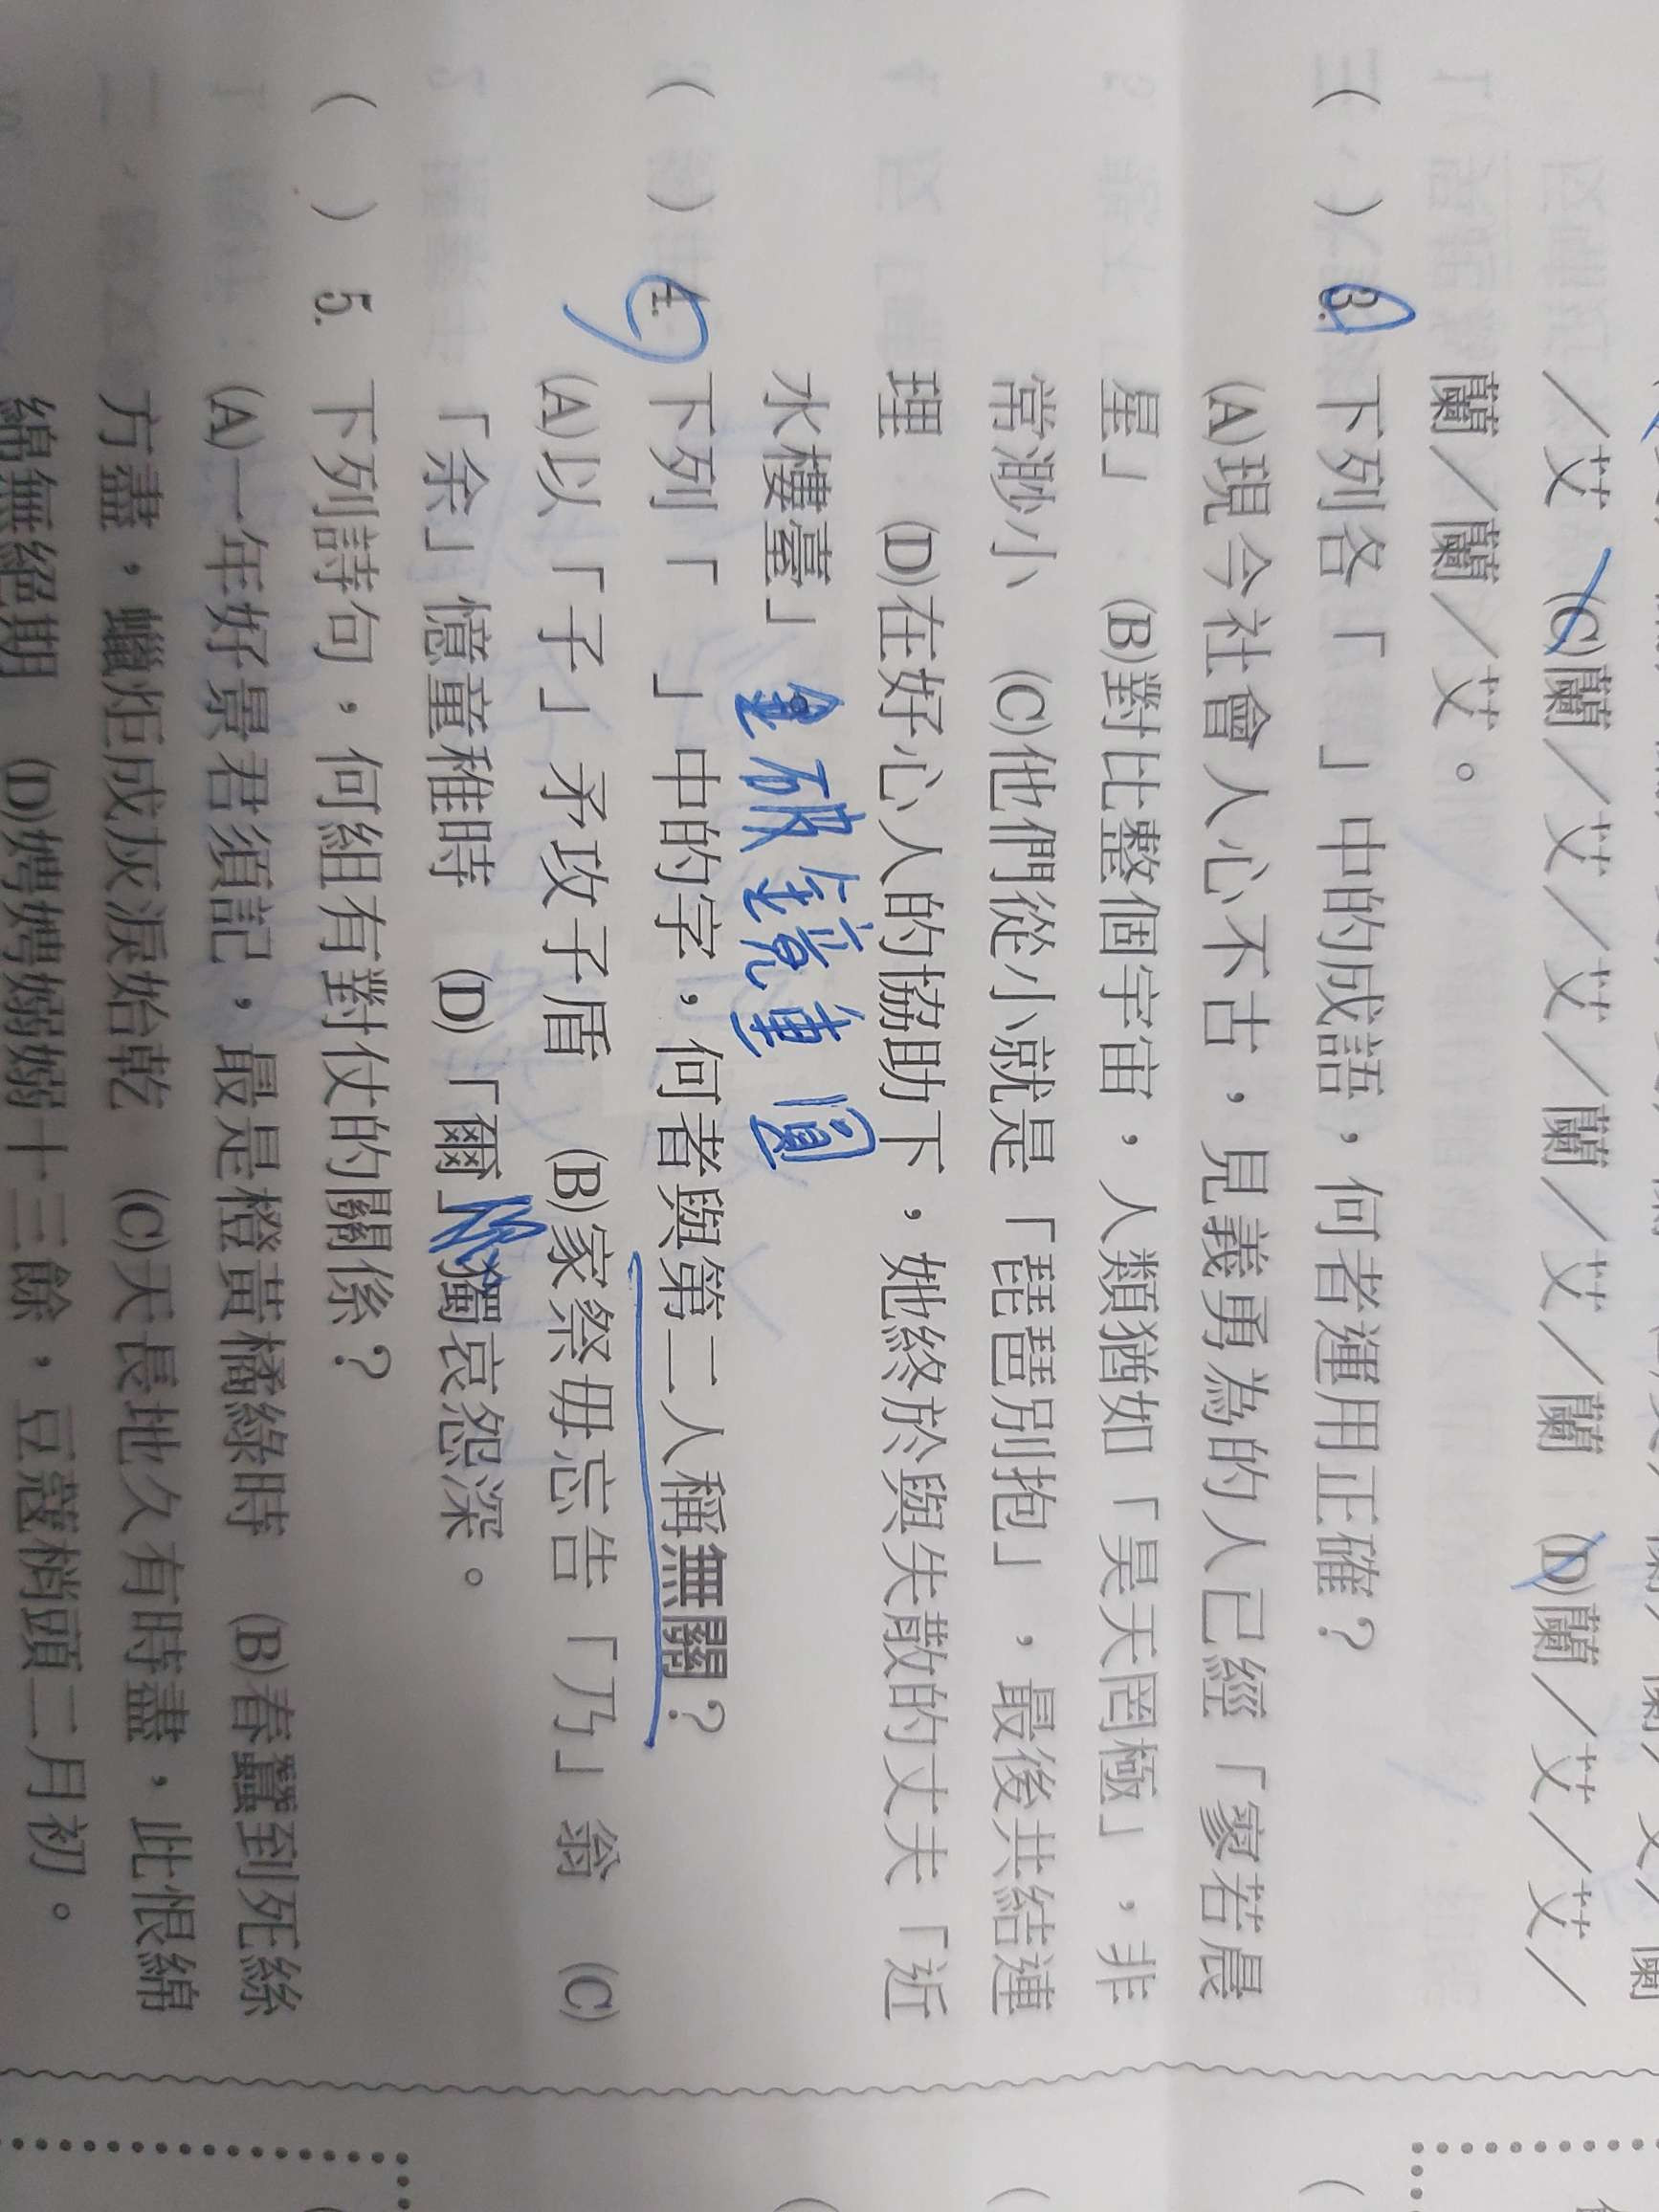 ／艾　(C)蘭／艾／艾／蘭／艾／蘭　(D)蘭／艾／艾／
蘭／蘭／艾。
(　) 3. 下列各「　」中的成語，何者運用正確？
(A)現今社會人心不古，見義勇為的人已經「寥若晨
星」　(B)對比整個宇宙，人類猶如「昊天罔極」，非
常渺小　(C)他們從小就是「琵琶別抱」，最後共結連
理　(D)在好心人的協助下，她終於與失散的丈夫「近
水樓臺」。破鏡重圓
(　) 4. 下列「　」中的字，何者與第二人稱無關？
(A)以「子」矛攻子盾　(B)家祭毋忘告「乃」翁　(C)
「余」憶童稚時　(D)「爾」獨哀怨深。
(　) 5. 下列詩句，何組有對仗的關係？
(A)一年好景君須記，最是橙黃橘綠時　(B)春蠶到死絲
方盡，蠟炬成灰淚始乾　(C)天長地久有時盡，此恨綿
綿無絕期　(D)娉娉嫋嫋十三餘，豆蔻梢頭二月初。